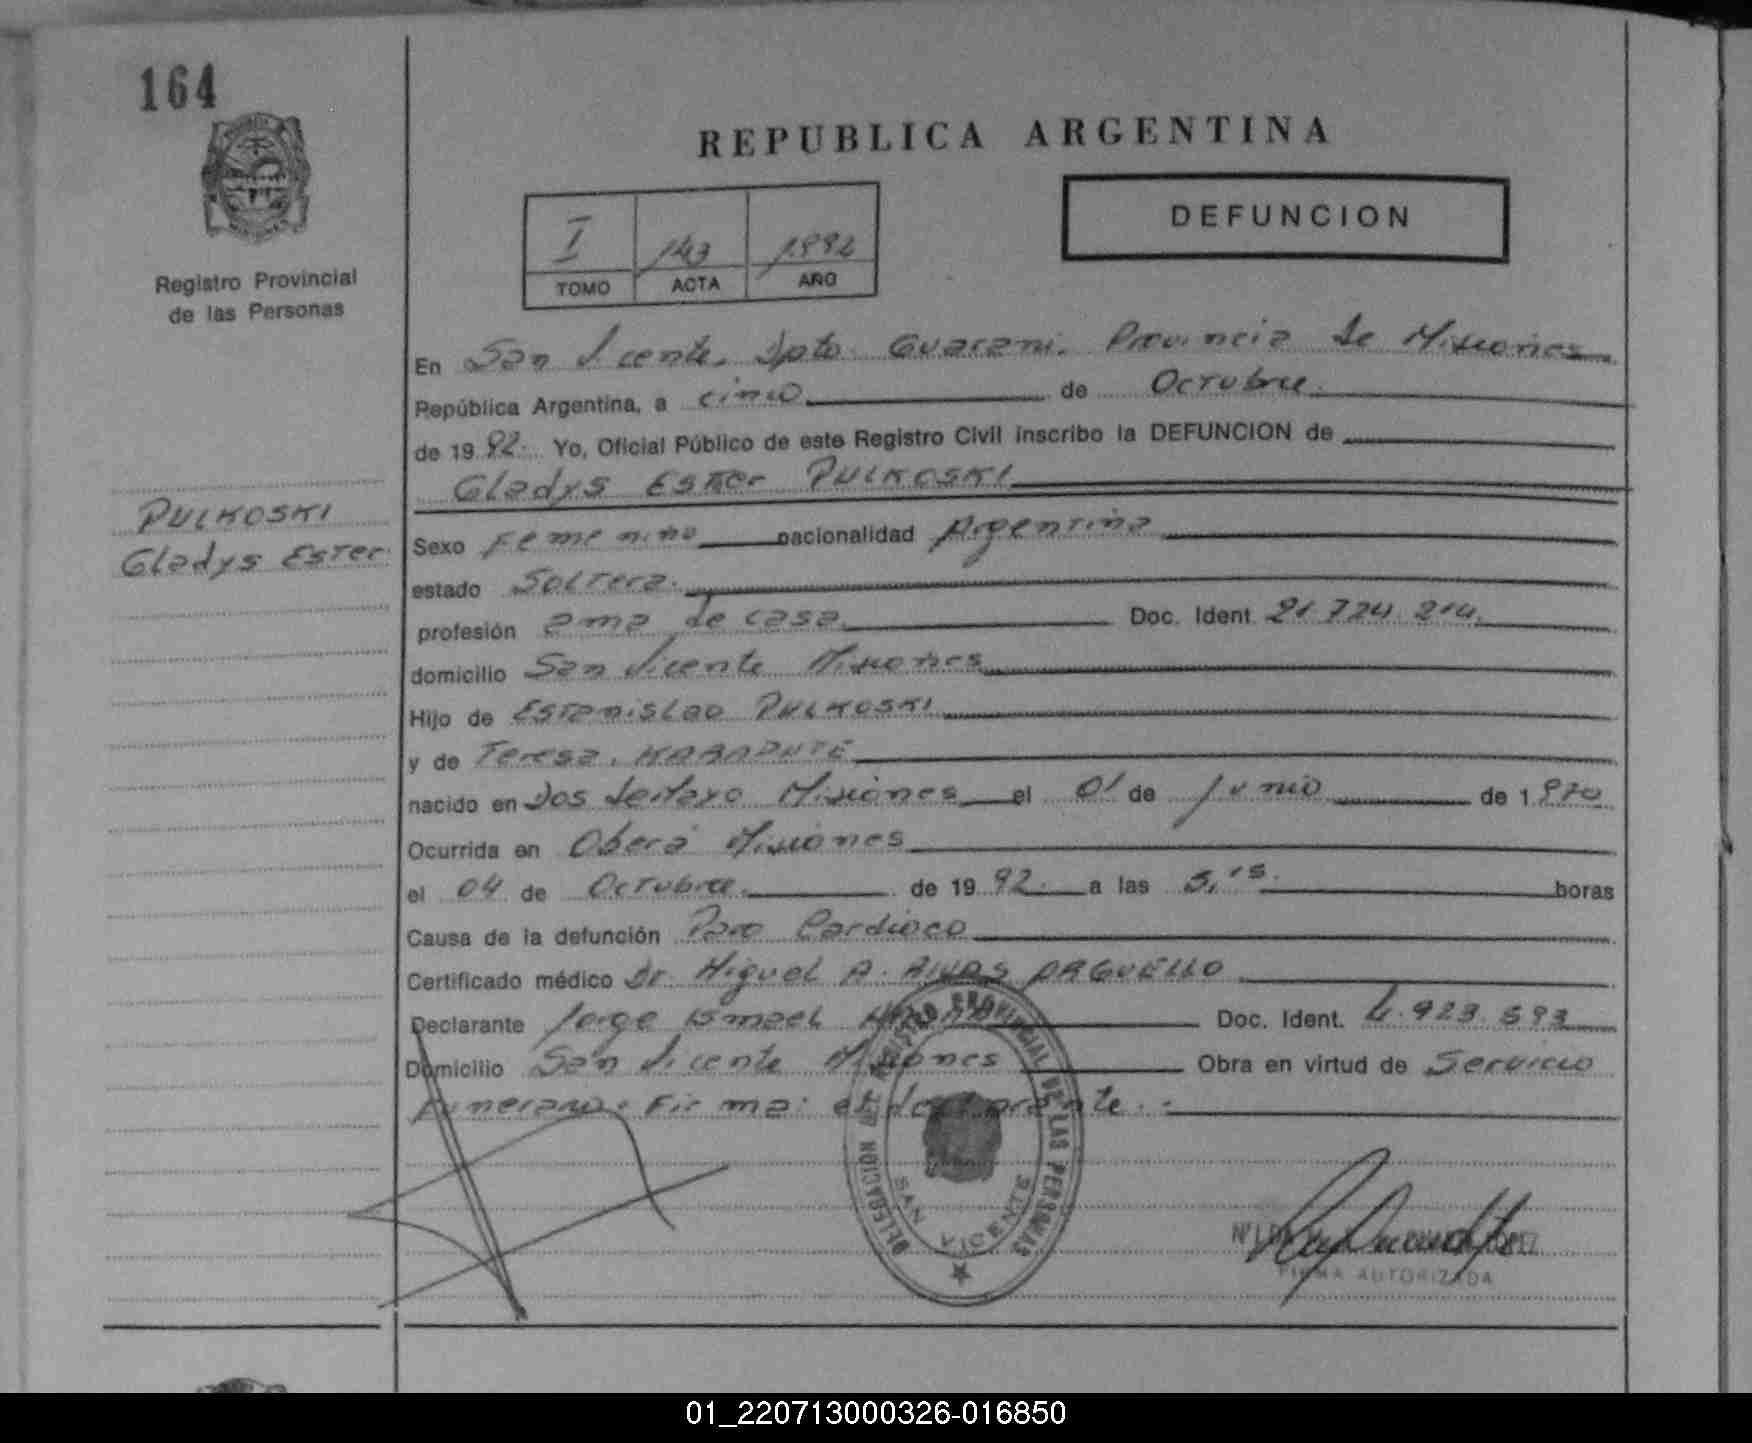 164
REPUBLICA ARGENTINA
DEFUNCION
I 143 1992
TOMO ACTA AÑO
Registro Provincial
de las Personas
En San Vicente, Dpto. Guarani. Provincia de Misiones
República Argentina, a cinco de Octubre.
de 1992. Yo, Oficial Público de este Registro Civil inscribo la DEFUNCION de
Gladys Ester PULKOSKI
PULKOSKI
Gladys Ester
Sexo Femenino nacionalidad Argentina
estado Soltera.
profesión ama de casa. Doc. Ident. 21.724.214.
domicilio San Vicente Misiones
Hijo de Estanislao PULKOSKI
y de Teresa.
nacido en Dos de Mayo Misiones el 01 de Junio de 1970
Ocurrida en Oberá Misiones
el 04 de Octubre. de 1992. a las 5,15. horas
Causa de la defunción Paro Cardiaco
Certificado médico Dr. Miguel A. RIVAS
Declarante Jorge Ismael Doc. Ident. 4.923.593
Domicilio San Vicente Misiones Obra en virtud de Servicio
Funerario. Firma: el declarante.-
DELEGACION DEL REGISTRO PROVINCIAL DE LAS PERSONAS
SAN VICENTE
FIRMA AUTORIZADA
01_220713000326-016850